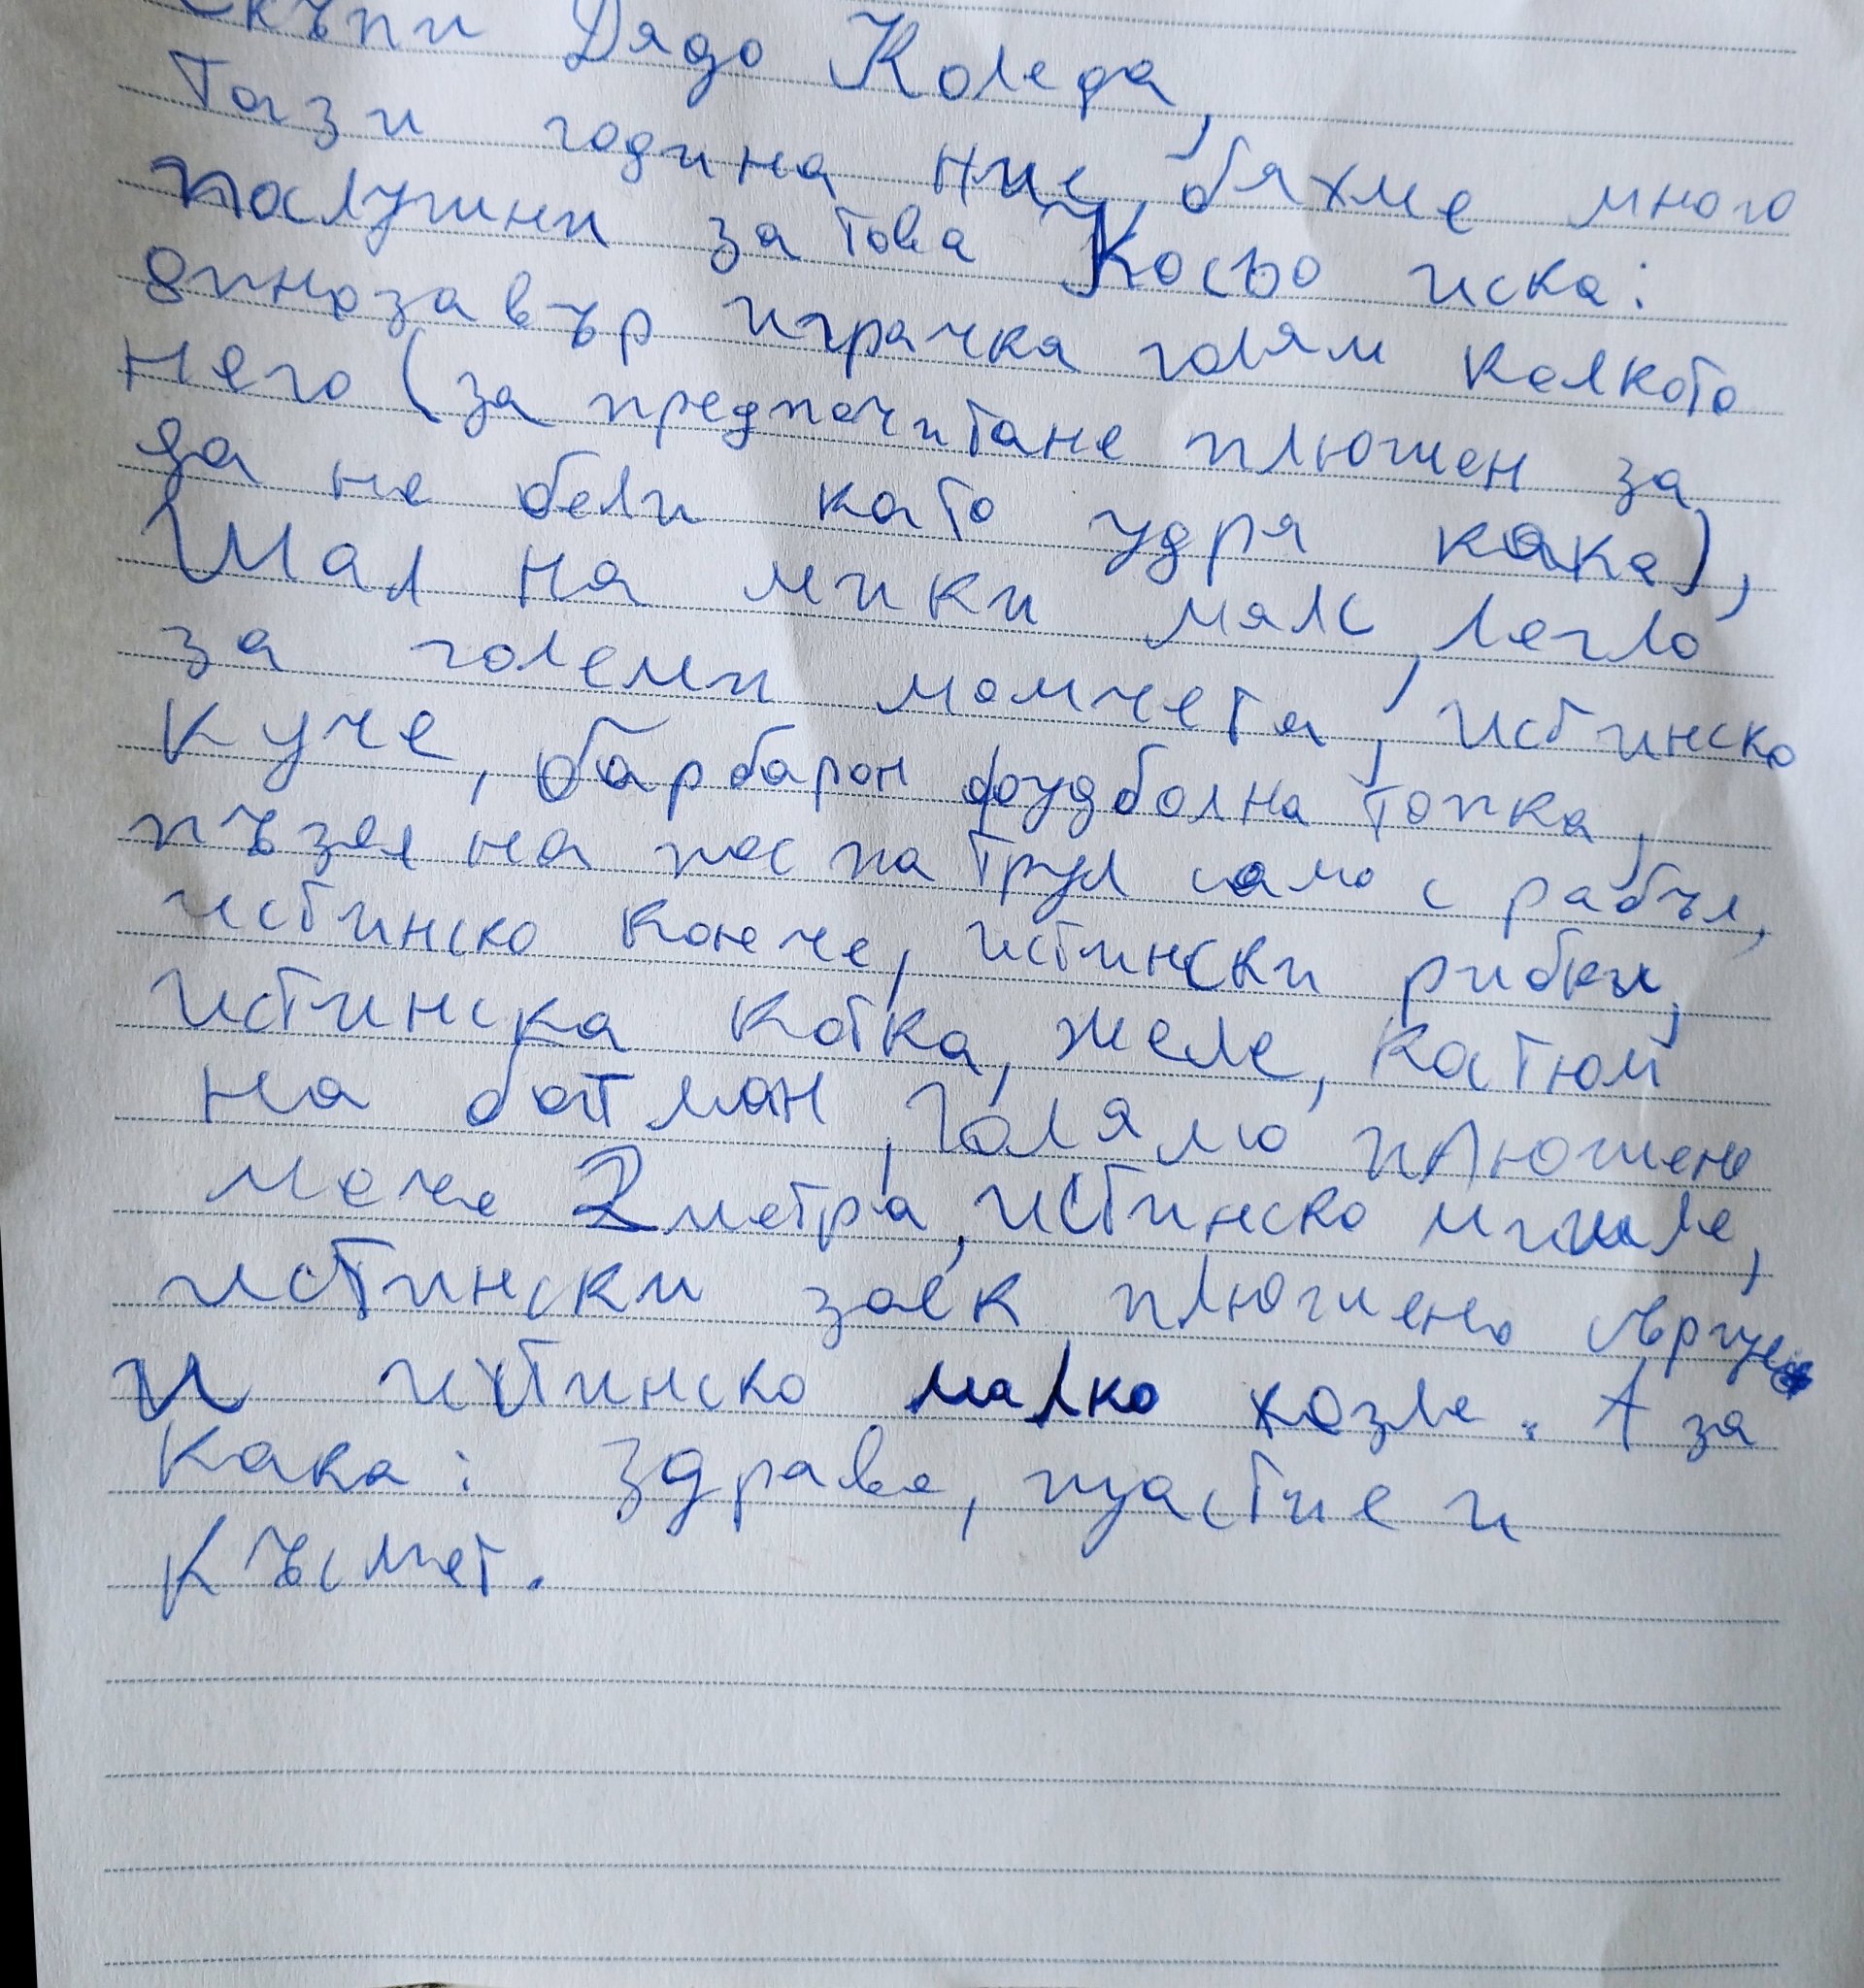 Скъпи Дядо Коледа,
Тази година ние бяхме много
послушни за това Косьо иска:
динозавър играчка голям колкото
него (за предпочитане плюшен за
да не боли като удря кака),
Шал на мики мялс, легло
за големи момчета, истинско
куче, барбарон фоудболна топка,
пъзел на пес патрул само с рабъл,
истинско конче, истински рибки,
истинска котка, желе, катюм
на батман, голямо плюшено
мече 2 метра, истинско мишле,
истински заек плюшено сърце
и истинско малко козле. А за
кака: здраве, щастие и
късмет.